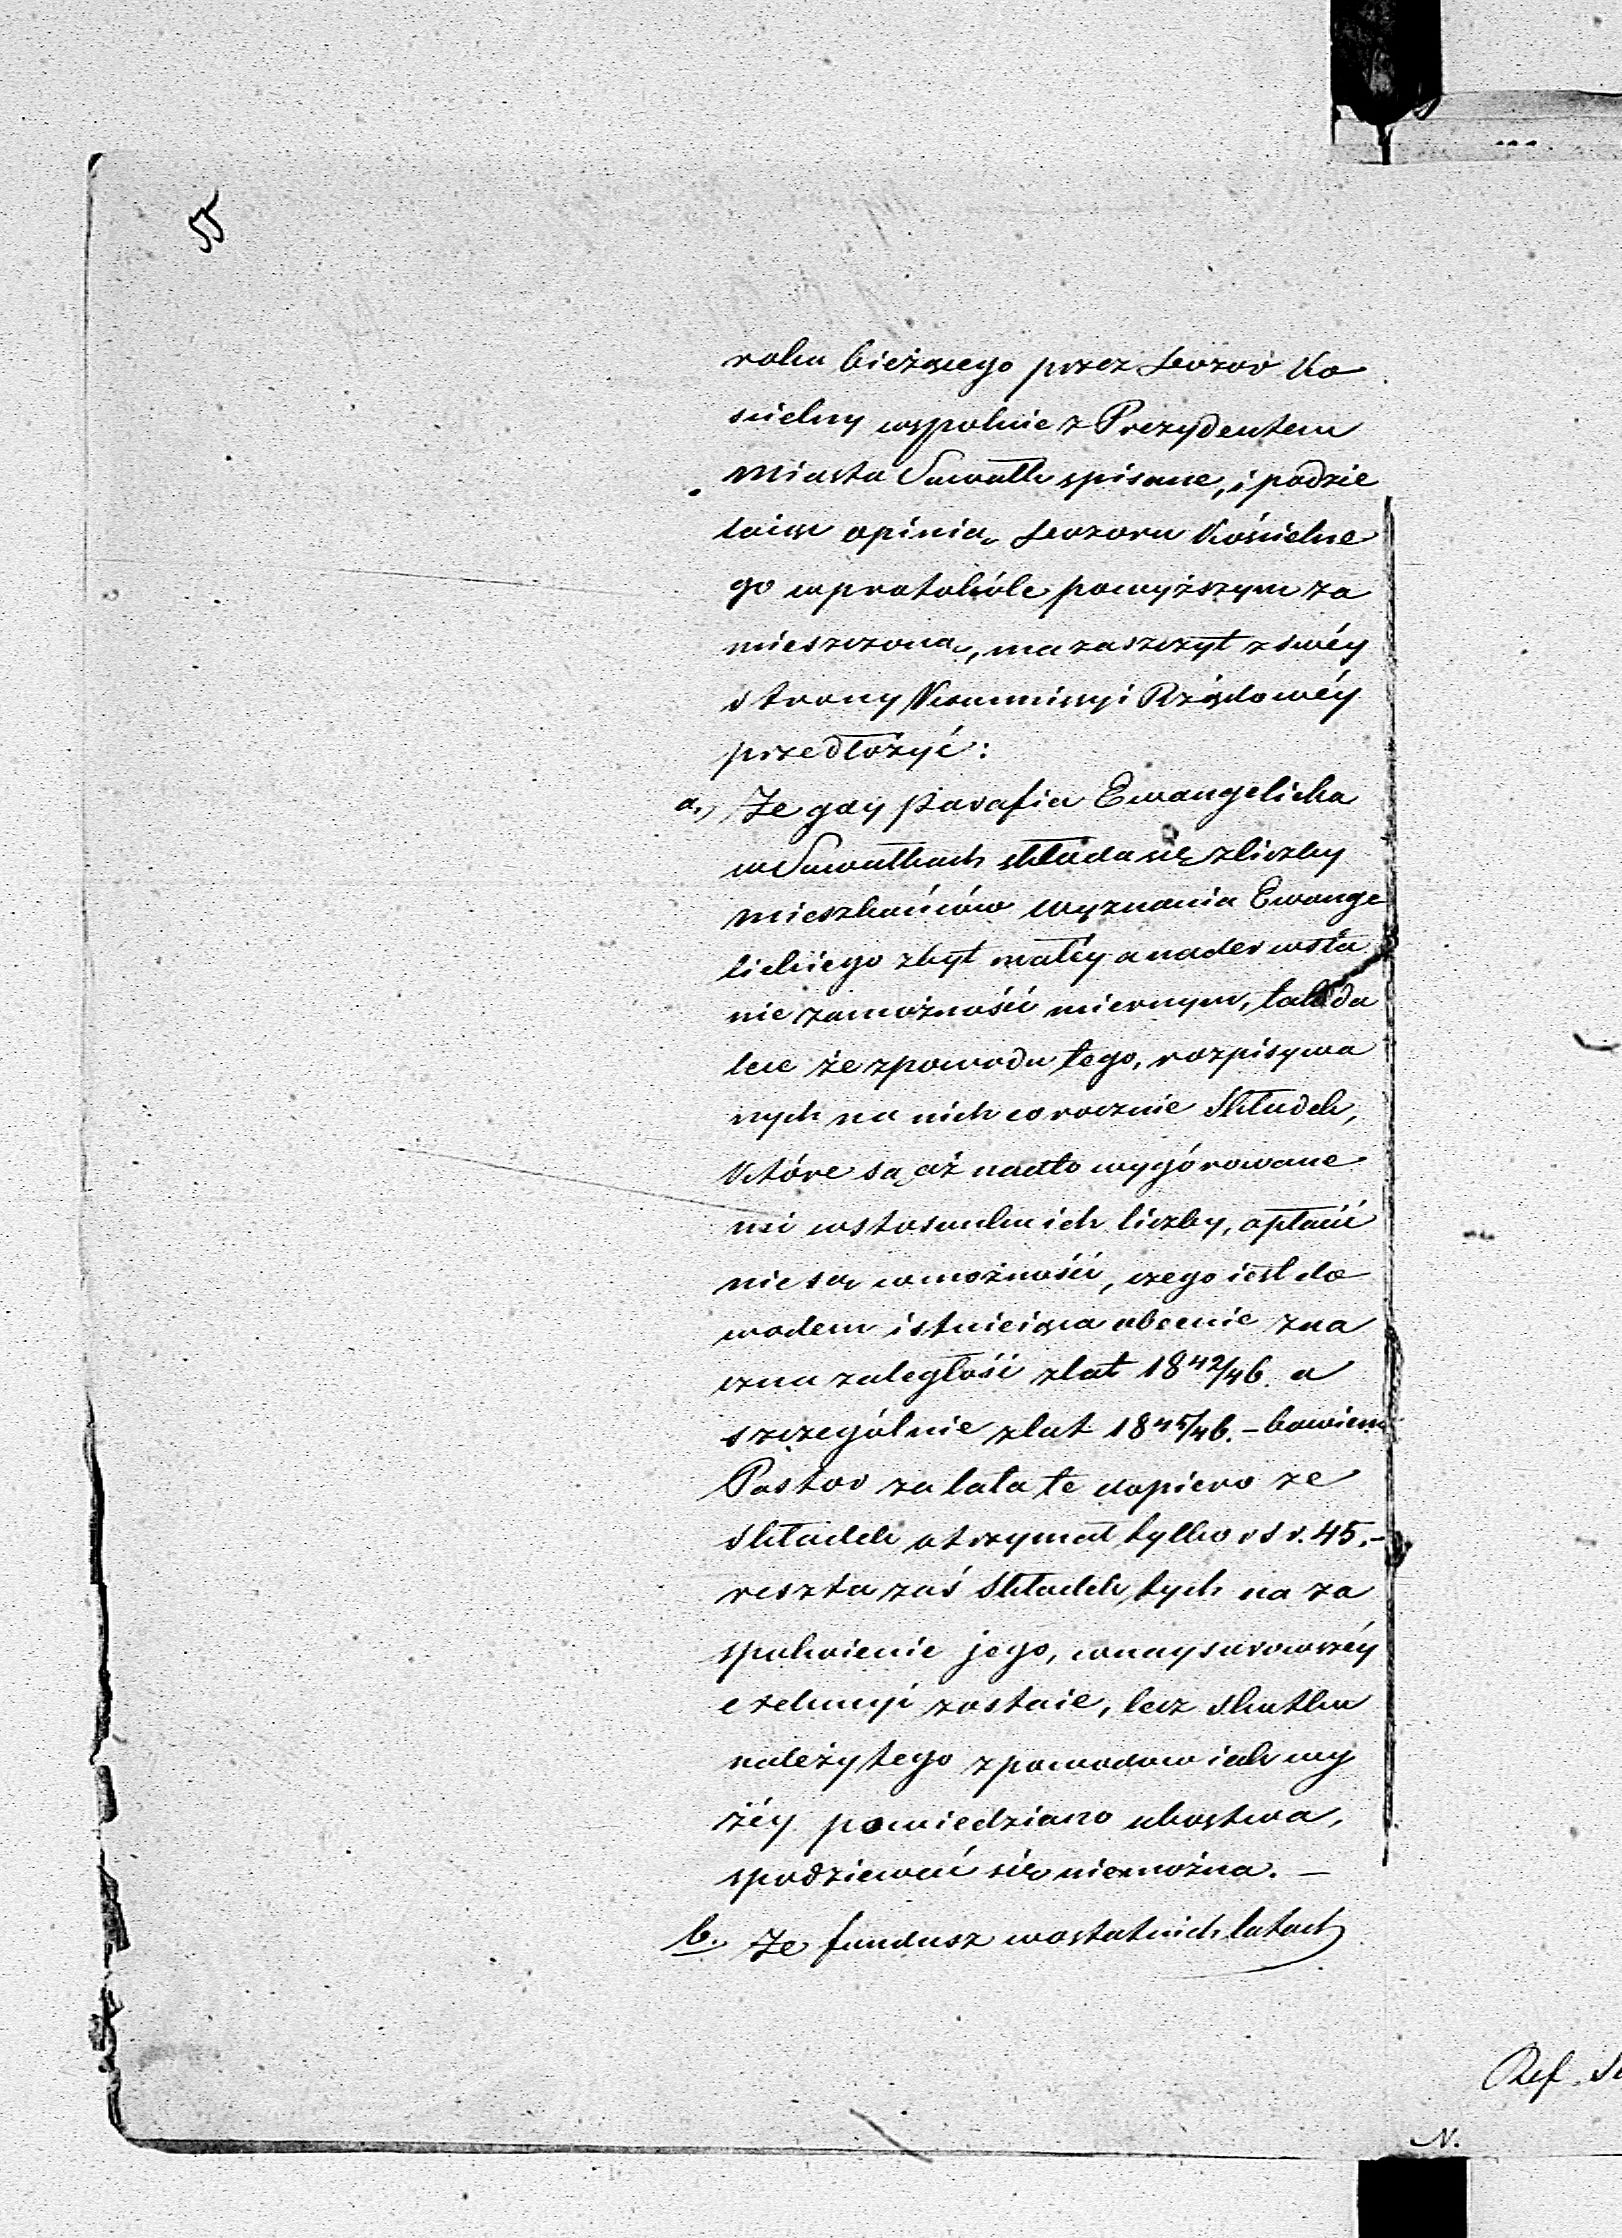 55
roku bieżącego przez Dozór Ko
ścielny wspolnie z Prezydentem
Miasta Suwałk spisane, i podzie
laiąc opinią Dozoru Kościelne
go w protokóle powyższym za
mieszczoną, ma zaszczyt z swéy
strony Kommissyi Rządowéy
przedłożyć:
a, Że gdy Parafia Ewangelicka
w Suwałkach składa się z liczby
mieszkańców wyznania Ewange
lickiego zbyt małéy a nader w sta
nie zamożności miernym, tak da
lece że z powodu tego, rozpisywa
nych na nich corocznie Składek,
które są aż nadto wygórowane
mi w stosunku ich liczby, opłacić
nie są w możności, czego iest do
wodem istnieiąca obecnie zna
czna zaległość z lat 1842/46. a
szczególnie z lat 1845/46. – bowiem
Pastor za lata te dopiero ze
Składek otrzymał tylko rs r. 45. –
reszta zaś Składek tych na za
spokoienie jego, w naysurowszéy
exekucyi zostaie, lecz skutku
należytego z powodow iak wy
żéy powiedziano ubostwa,
spodziewać się niemożna. –
b. Że fundusz w ostatnich latach
Ref.
N.